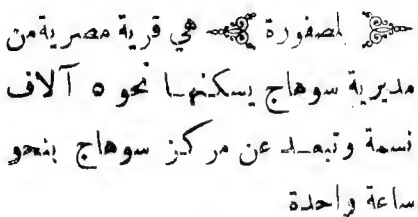 بلصفورة هي قرية مصرية من
مديرية سوهاج يسكنها نحو ٥ آلاف
نسمة وتبعد عن مركز سوهاج بنحو
ساعة واحدة